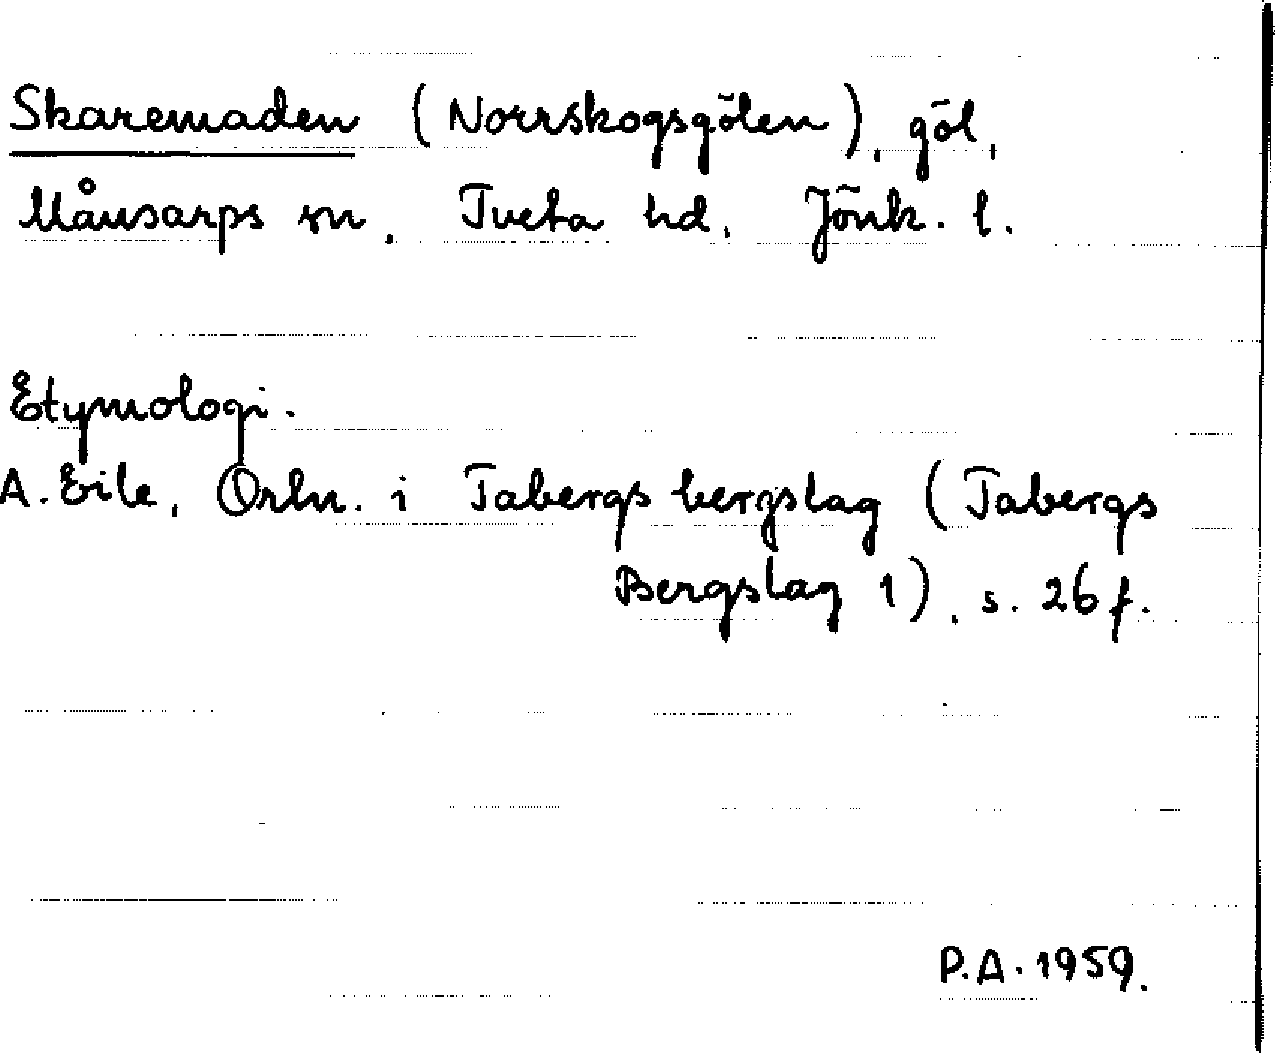 Skaremaden (Norrskogsgölen), göl,
Månsarps sn, Tveta hd, Jönk. l.
Etymologi.
A. Eile, Ortn. i Tabergs bergslag (Tabergs
Bergslag 1), s. 26 f.
P.A. 1959.